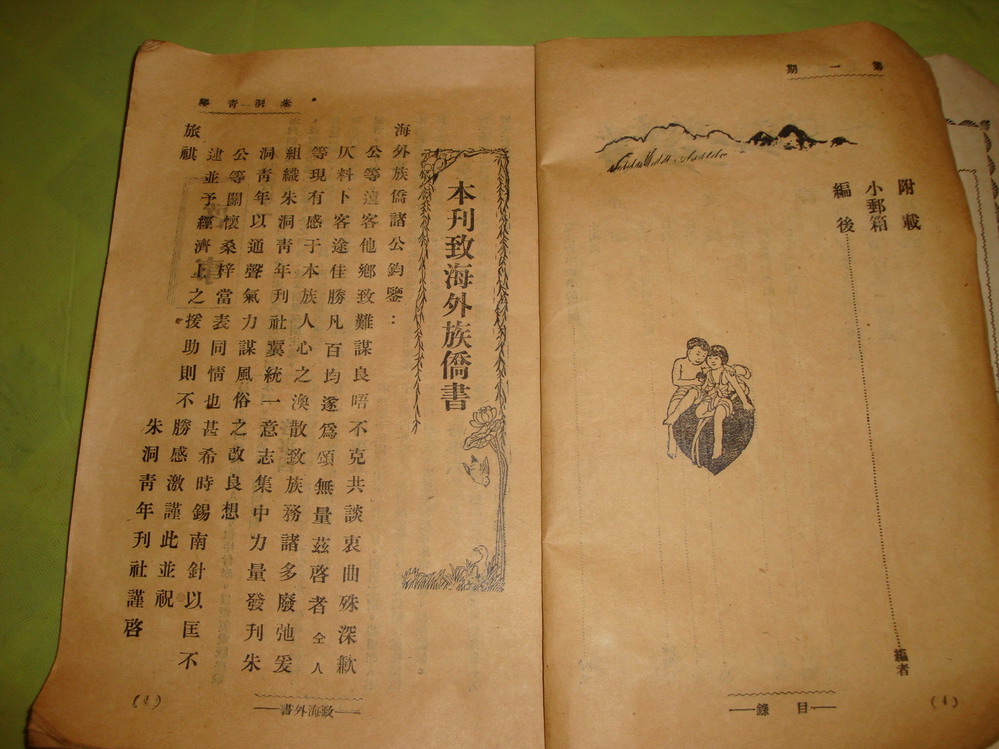 第一期
附載
小郵箱
編後……編者
目錄
(4)
朱洞青年
本刊致海外族僑書
海外族僑諸公鈞鑒：
公等遠客他鄉致難謀良唔不克共談衷曲殊深歉
仄料卜客途佳勝凡百均遂爲頌無量茲啓者仝人
等現有感于本族人心之渙散致族務諸多廢弛爰
組織朱洞青年刊社冀統一意志集中力量發刊朱
洞青年以通聲氣力謀風俗之改良想
公等關懷桑梓當表同情也甚希時錫南針以匡不
逮並予經濟上之援助則不勝感激謹此並祝
旅祺
朱洞青年刊社謹啓
致海外書